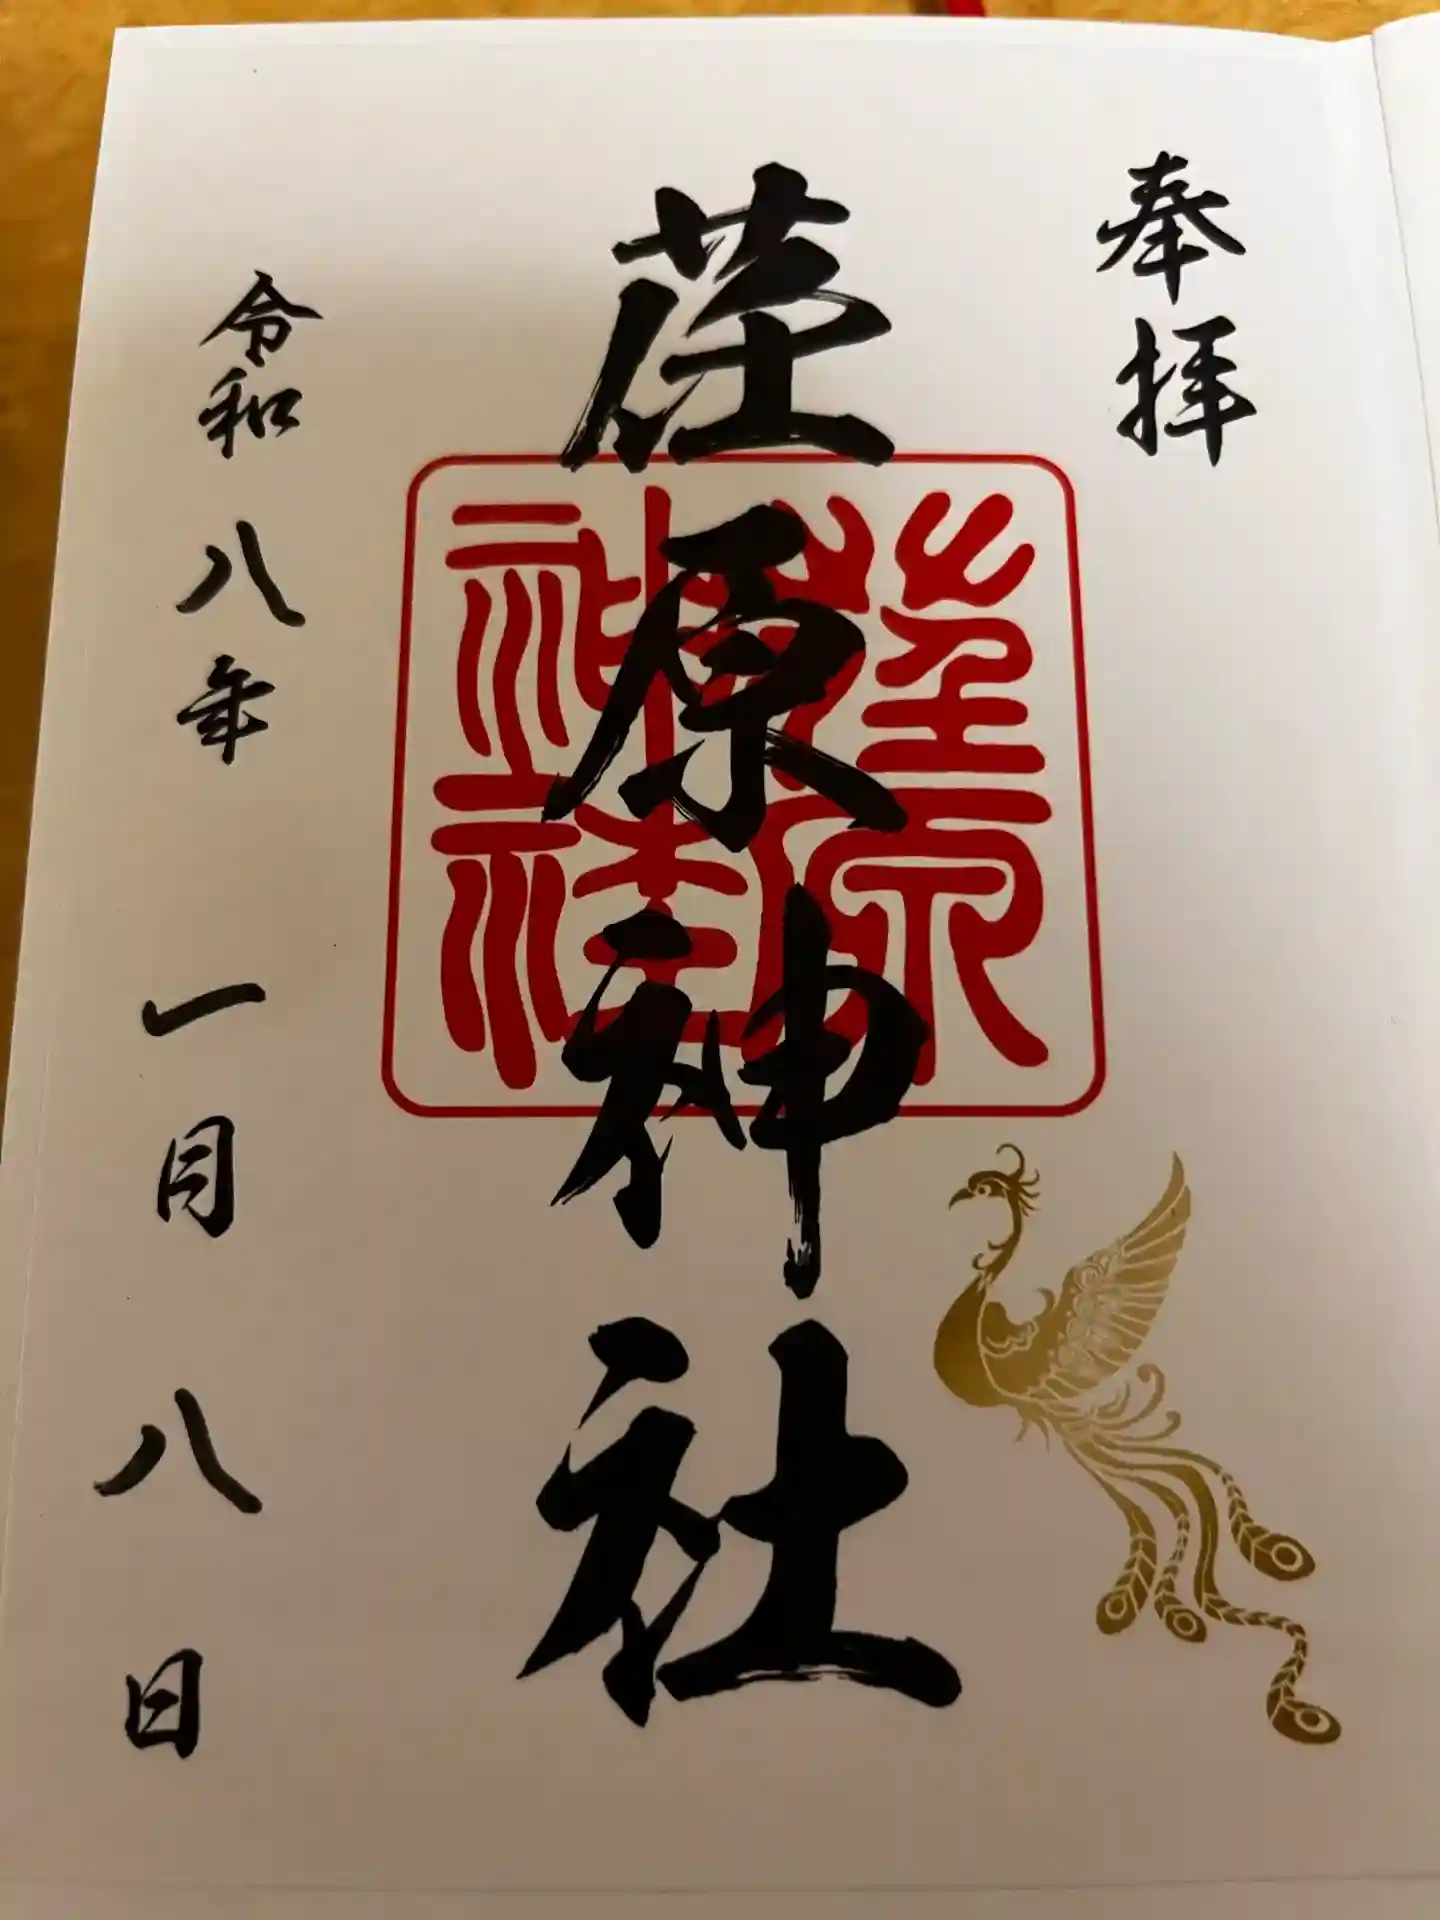 奉拝
荏原神社
荏原
神社
令和八年一月八日